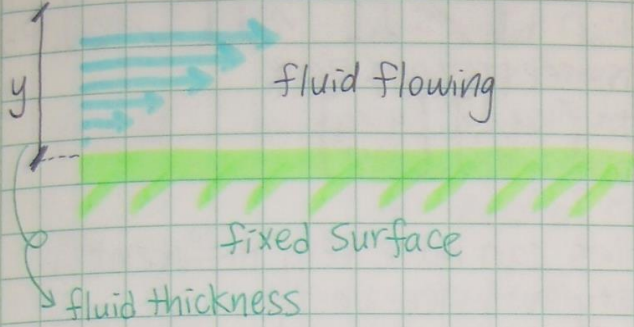 y
fluid flowing
fixed surface
fluid thickness